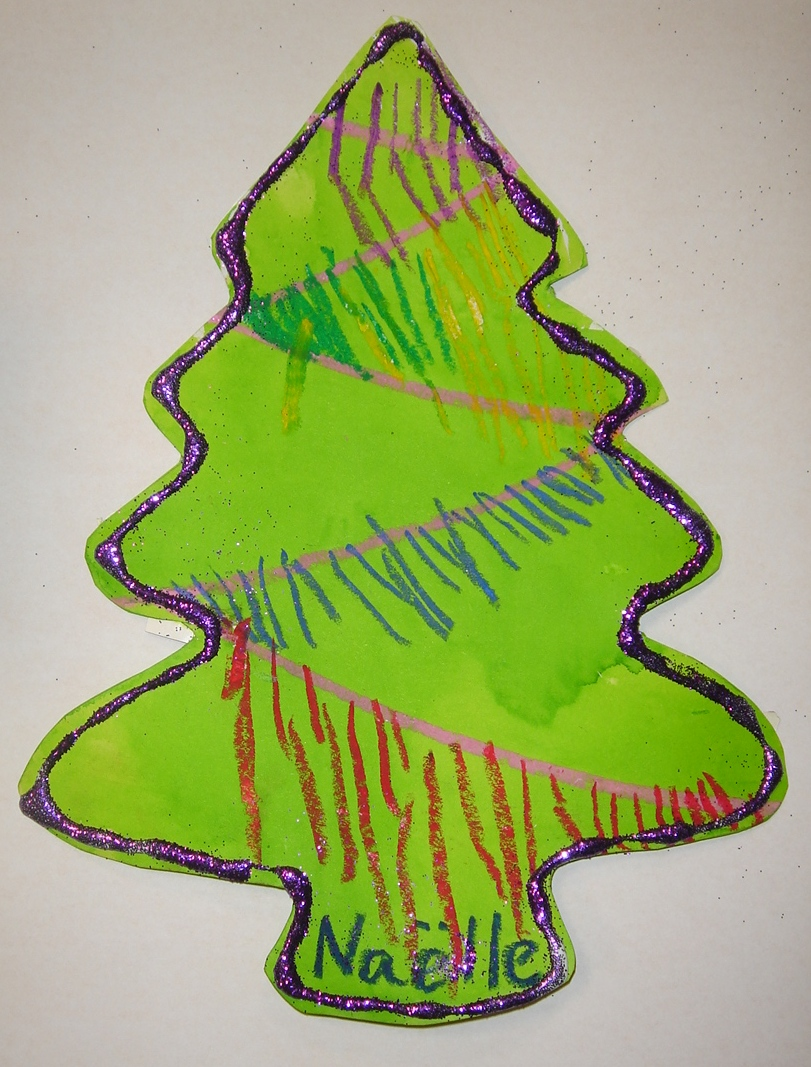 Naëlle